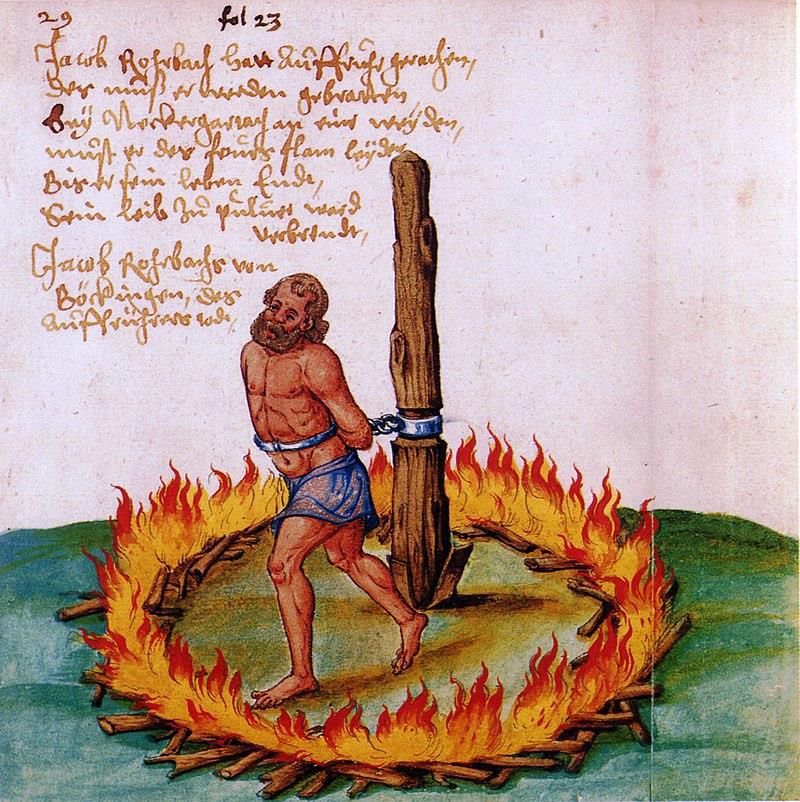 29
fol 23
Jacob Rohrbach hatt Auffruhr gerachen,
des must er werden gebratten
Bey Neckergartach an eine weyden,
must er des feures flam leyden
Bis er sein leben Endt,
Sein leib zu puluer ward
verbrendt,
Jacob Rohrbachs von
Böckingen, des
Auffrührers todt,